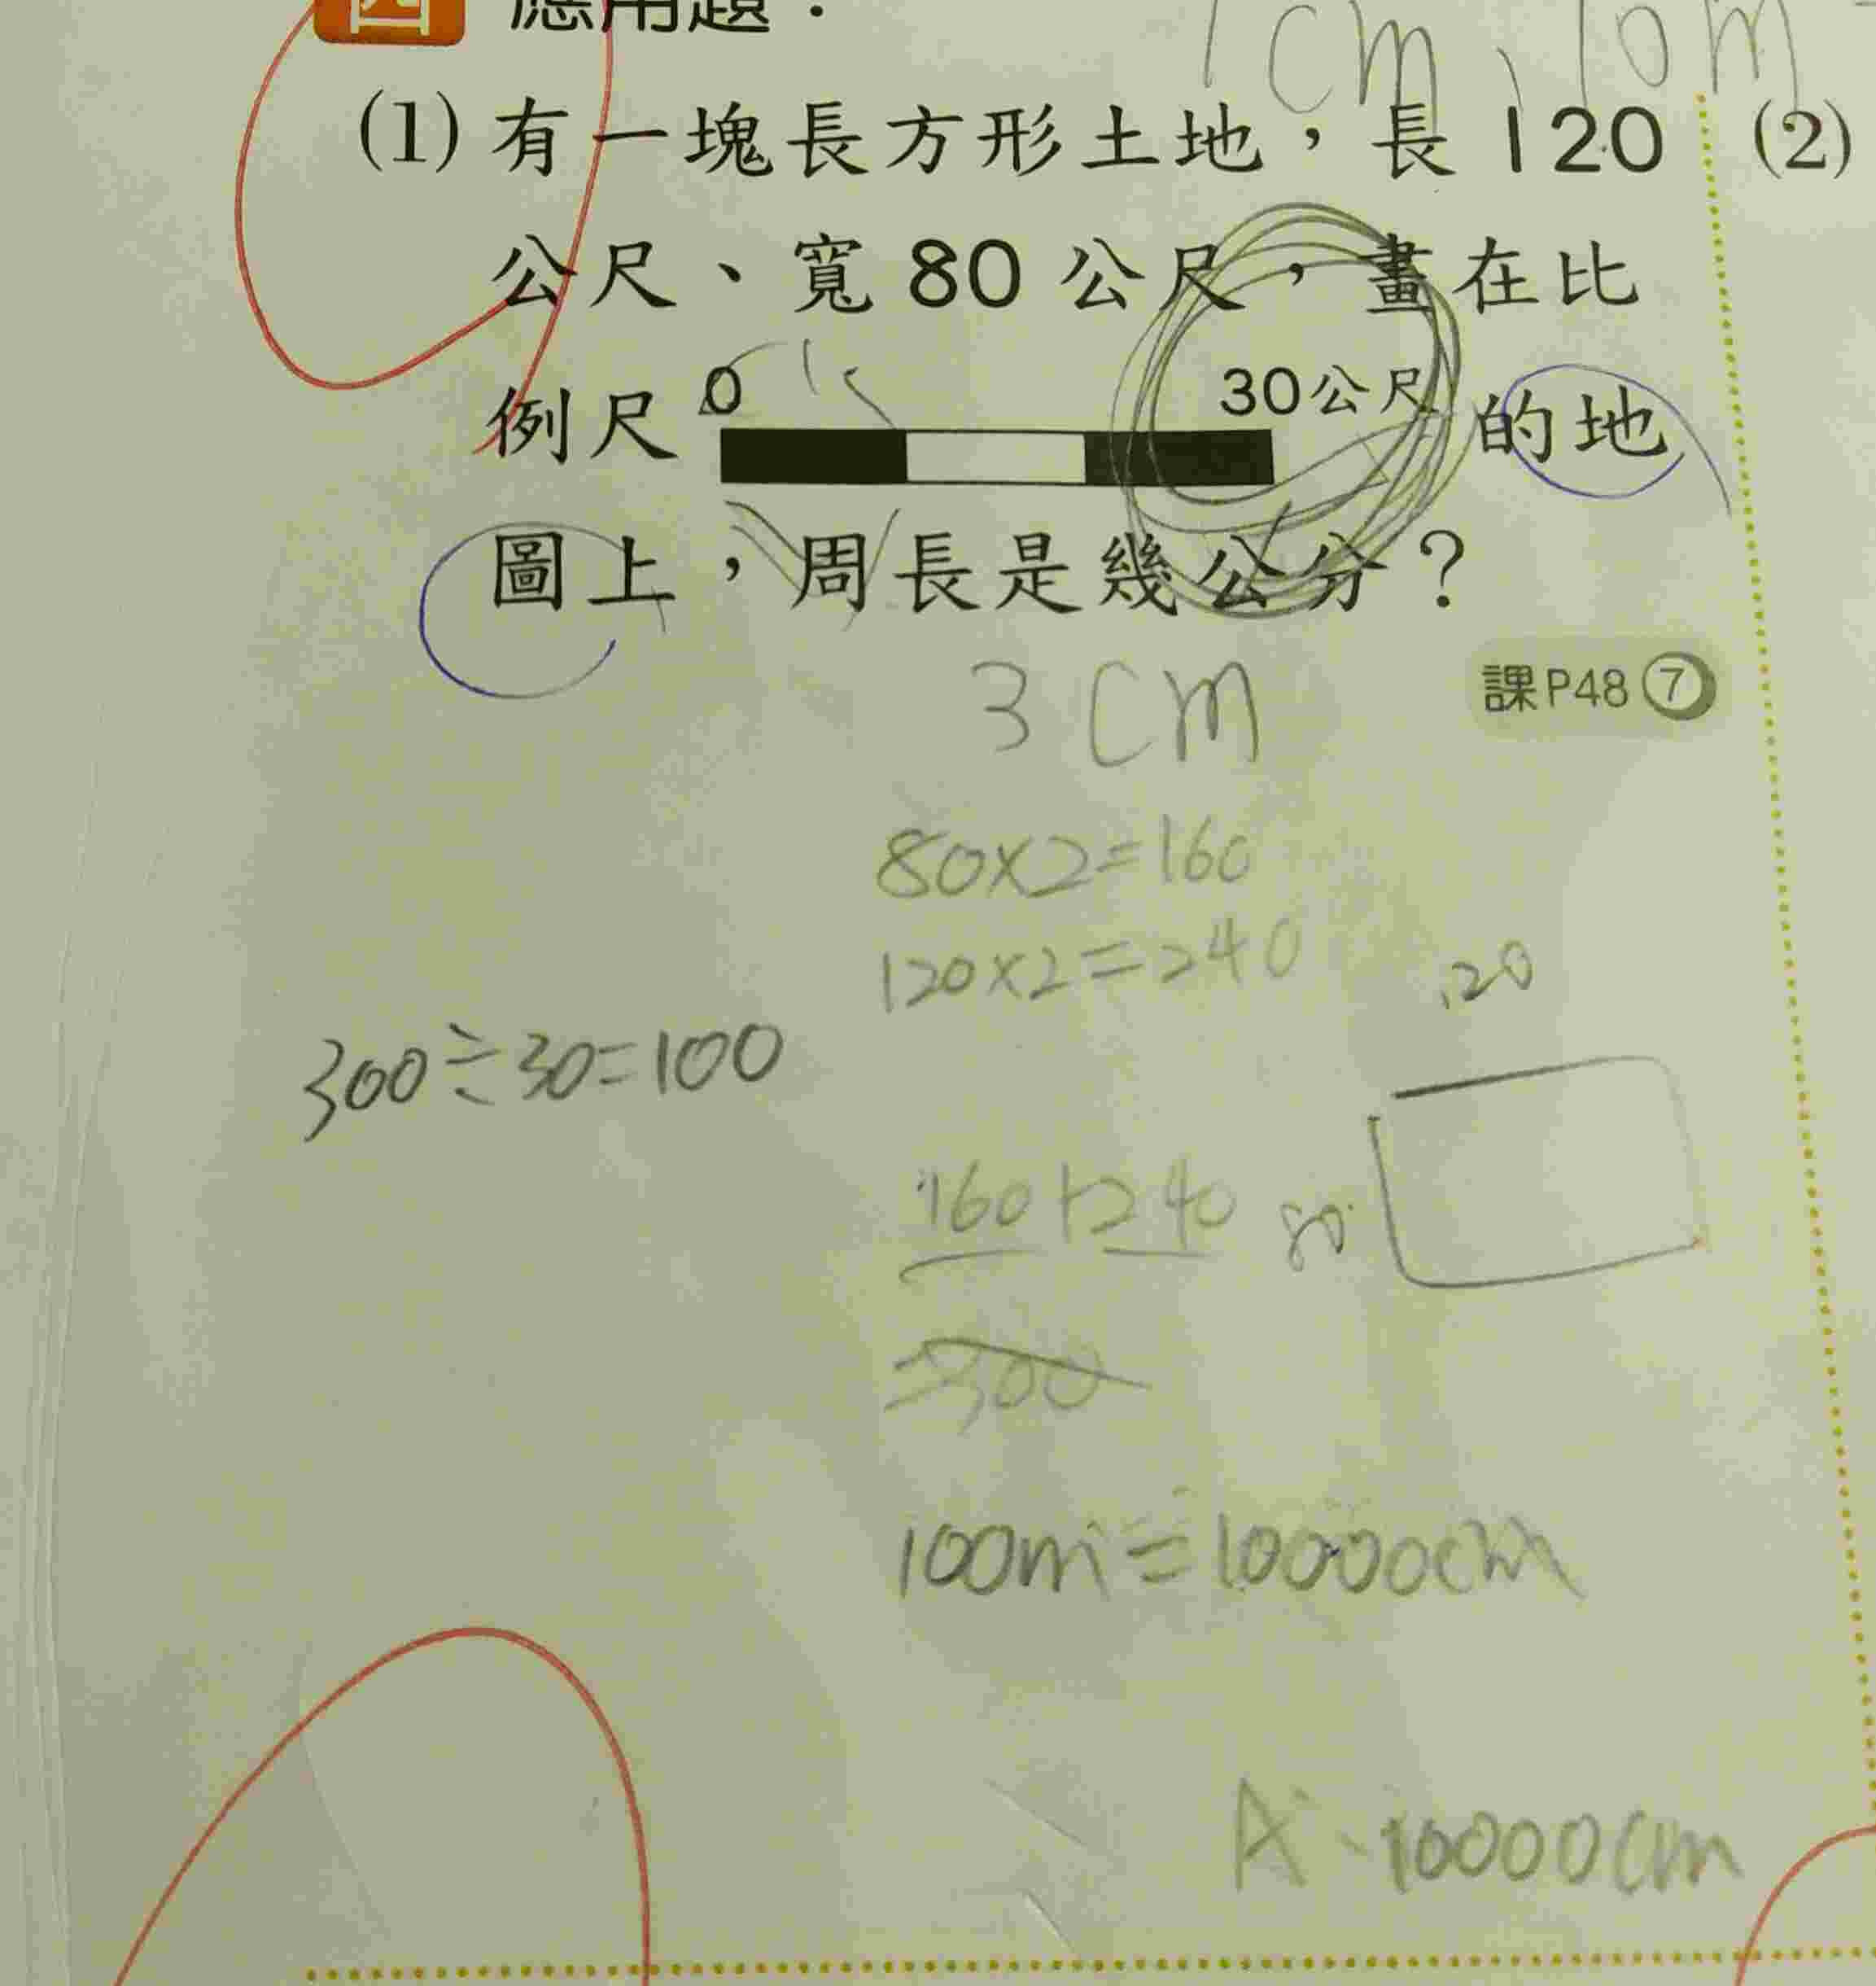 四 應用題：
1cm、10m
(1) 有一塊長方形土地，長 120 (2)
公尺、寬 80 公尺，畫在比
例尺 0 30公尺 的地
圖上，周長是幾公分？
3 cm
課P48 7
80×2=160
120×2=240
120
300÷30=100
160+240
80
=300
100m=10000cm
A、10000cm